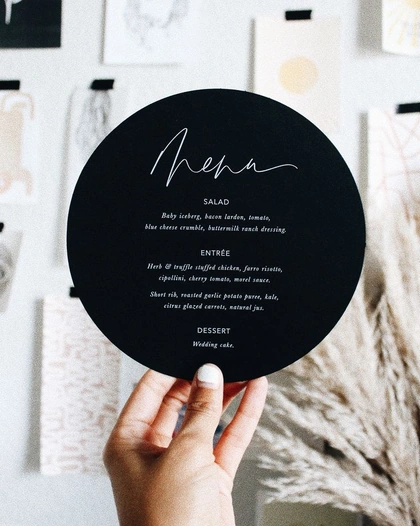 Menu
SALAD
Baby iceberg, bacon lardon, tomato,
blue cheese crumble, buttermilk ranch dressing.
ENTRÉE
Herb & truffle stuffed chicken, farro risotto,
cipollini, cherry tomato, morel sauce.
Short rib, roasted garlic potato puree, kale,
citrus glazed carrots, natural jus.
DESSERT
Wedding cake.